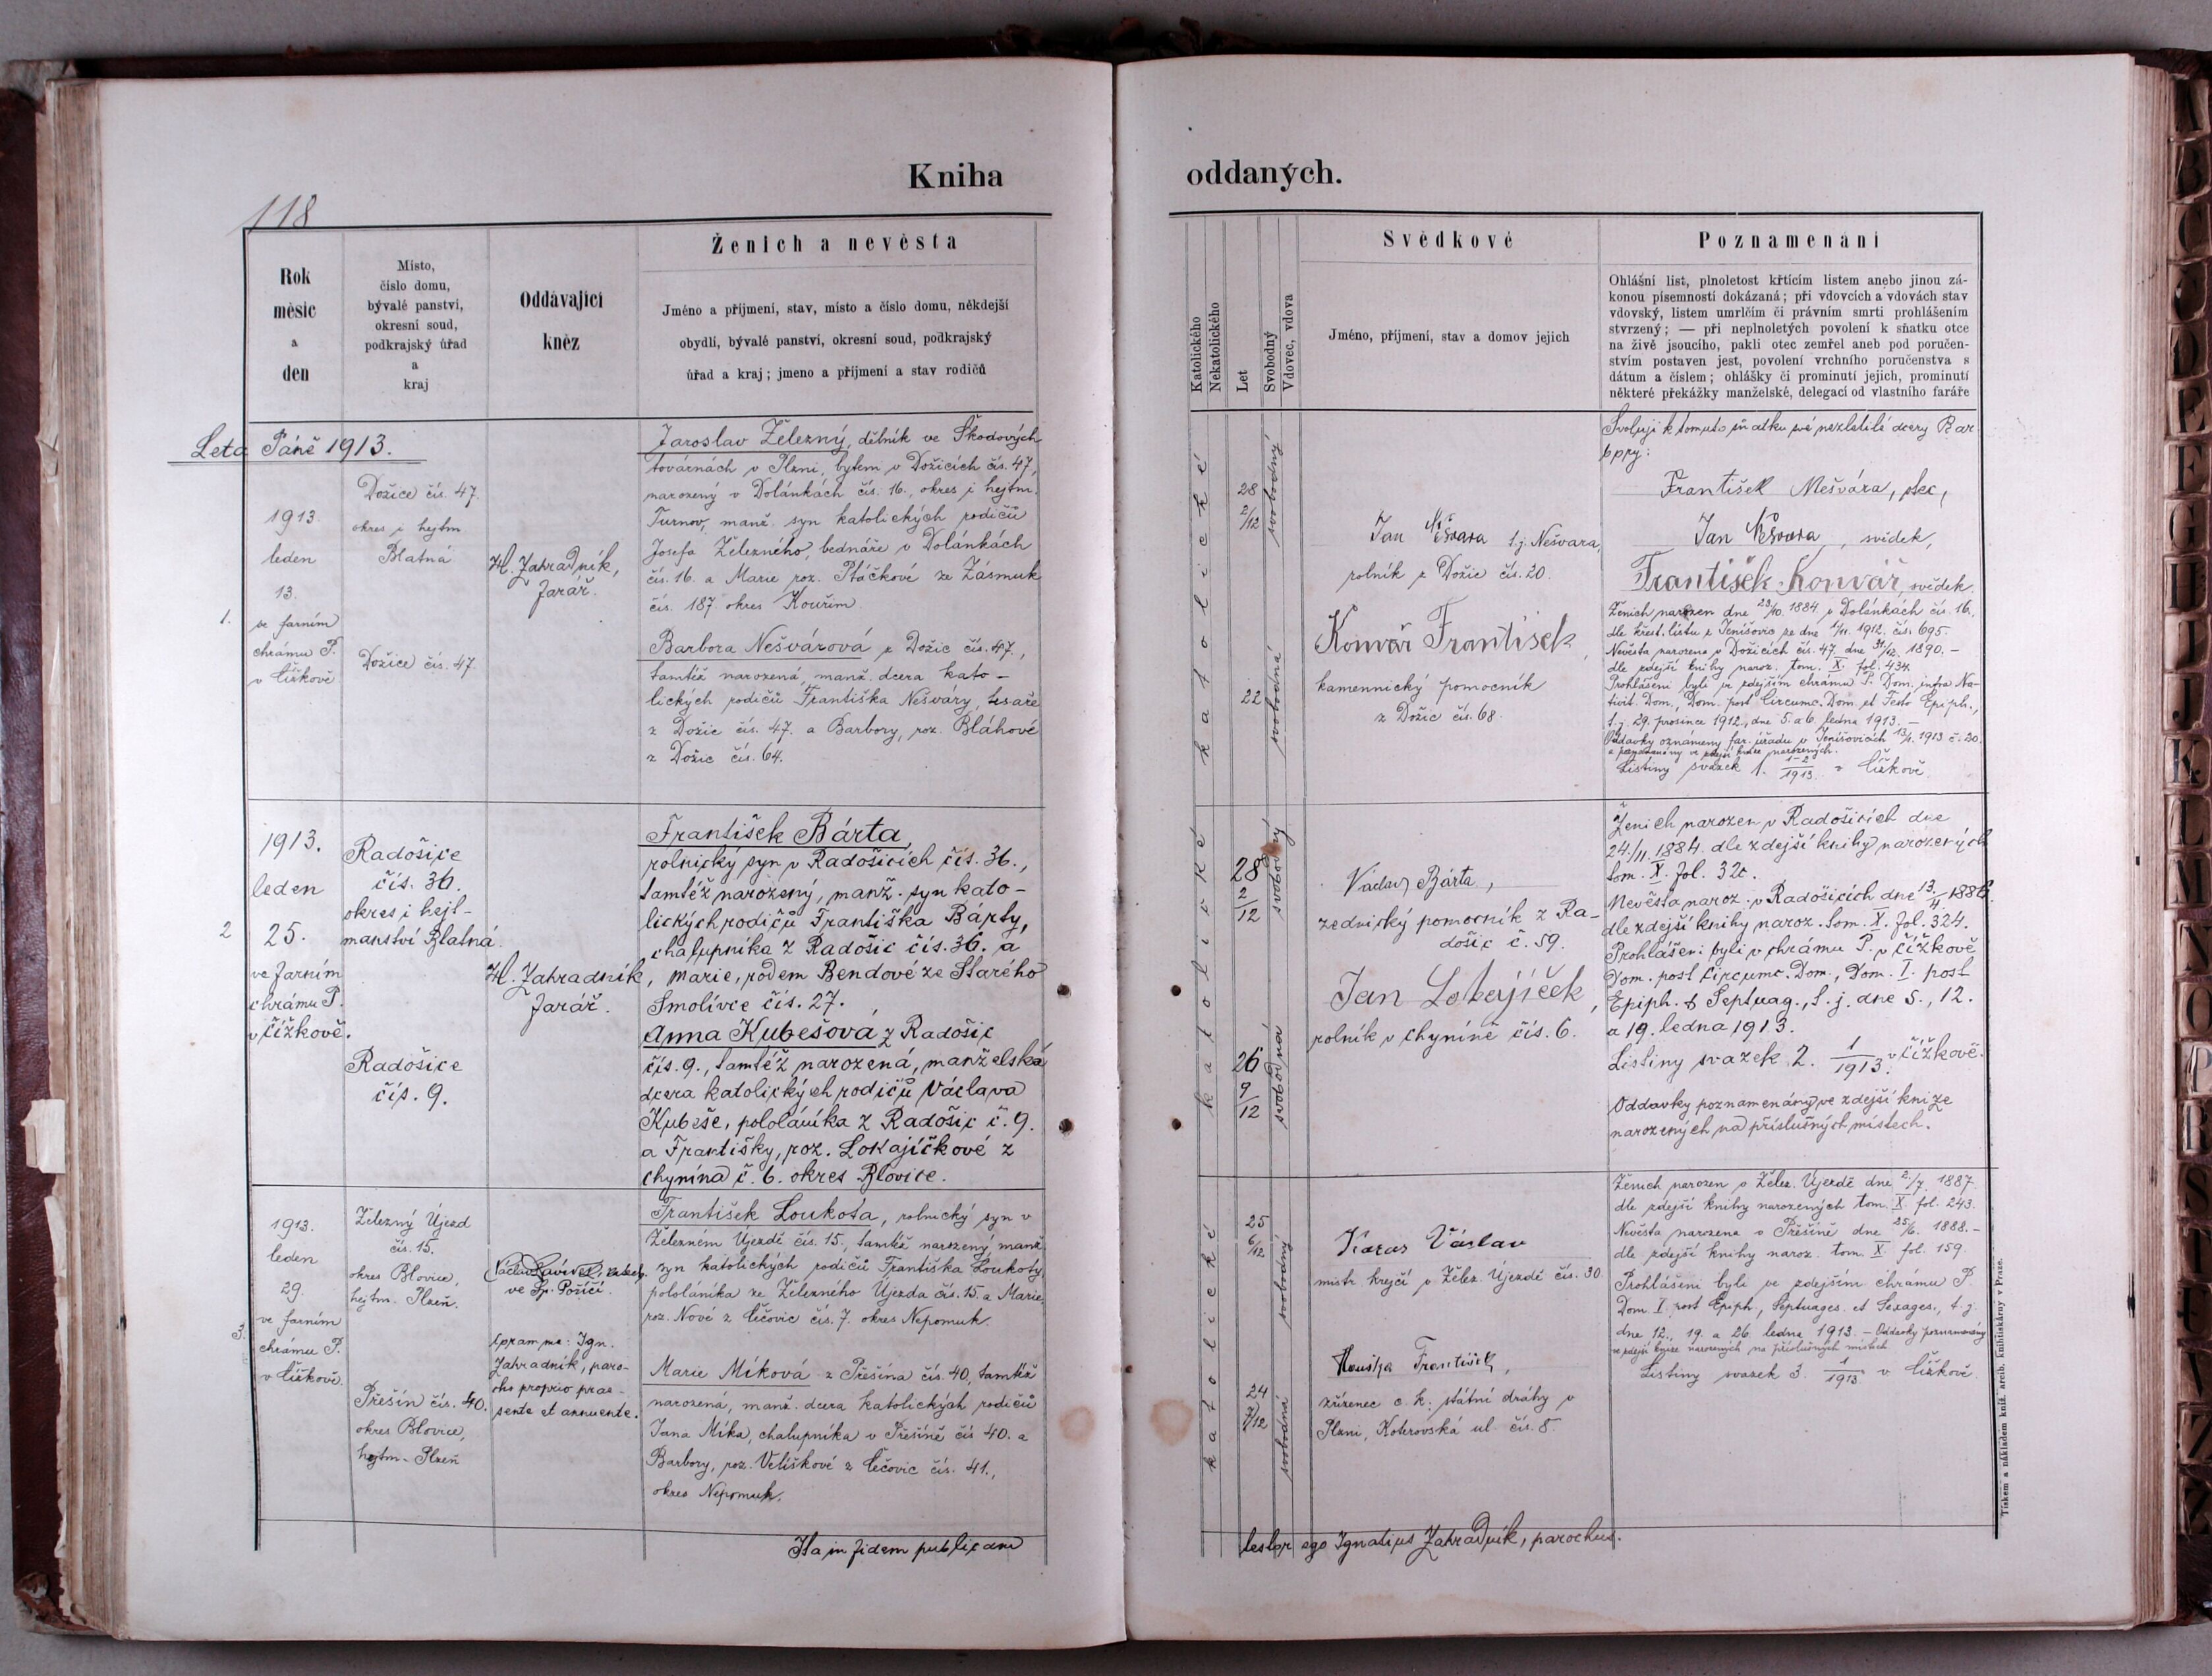 Kniha
oddaných.
118
Rok
měsíc
a
den
Místo,
číslo domu,
bývalé panství,
okresní soud,
podkrajský úřad
a
kraj
Oddávající
kněz
Ženich a nevěsta
Jméno a příjmení, stav, místo a číslo domu, někdejší
obydlí, bývalé panství, okresní soud, podkrajský
úřad a kraj; jmeno a příjmení a stav rodičů
Katolického
Nekatolického
Let
Svobodný
Vdovec, vdova
Svědkové
Jméno, příjmení, stav a domov jejich
Poznamenání
Ohlášní list, plnoletost křtícím listem anebo jinou zá-
konou písemností dokázaná; při vdovcích a vdovách stav
vdovský, listem umrlčím či právním smrti prohlášením
stvrzený; — při neplnoletých povolení k sňatku otce
na živě jsoucího, pakli otec zemřel aneb pod poručen-
stvím postaven jest, povolení vrchního poručenstva s
dátum a číslem; ohlášky či prominutí jejich, prominutí
některé překážky manželské, delegací od vlastního faráře
Leta Páně 1913.
1.
1913.
leden
13.
ve farním
chrámu P.
v Čížkově
Dožice čís. 47.
okres i hejtm
Blatná
Dožice čís. 47.
H. Zahradník,
farář.
Jaroslav Železný, dělník ve Škodových
továrnách v Plzni, bytem v Dožicích čís. 47,
narozený v Dolánkách čís. 16., okres i hejtm.
Turnov, manž. syn katolických rodičů
Josefa Železného, bednáře v Dolánkách
čís. 16. a Marie roz. Ptáčkové ze Zásmuk
čís. 187 okres Kouřim.
Barbora Nešvárová z Dožic čís. 47.,
tamtéž narozená, manž. dcera kato-
lických rodičů Františka Nešváry, tesaře
z Dožic čís. 47. a Barbory, roz. Bláhové
z Dožic čís. 64.
katolické
28
2/12
svobodný
22
svobodná
Jan Nešvara t.j. Nešvara,
rolník z Dožic čís. 20.
Konvář František,
kamennický pomocník
z Dožic čís. 68.
Svoluji k tomuto sňatku své nezletilé dcery Bar
bory:
František Nešvára, otec,
Jan Nešvara, svědek,
František Konvář, svědek.
Ženich narozen dne 23/10. 1884 v Dolánkách čís. 16.,
dle křest. listu z Jenišovic ze dne 1/11. 1912. čís. 695.
Nevěsta narozena v Dožicích čís. 47. dne 31/12. 1890. –
dle zdejší knihy naroz. tom. X. fol. 434.
Prohlášeni byli ve zdejším chrámu P. Dom. infra Na-
tivit. Dom., Dom. post Circumc. Dom. et Festo Epiph.,
t. j. 29. prosince 1912., dne 5. a 6. ledna 1913. –
Oddavky oznámeny far. úřadu v Jenišovicích 13/1. 1913 č. 20.
a poznamenány ve zdejší knize narozených.
Listiny svazek 1. 1-2/1913. v Čížkově.
2
1913.
leden
25.
ve farním
chrámu P.
v Čížkově.
Radošice
čís. 36.
okres i hejt-
manství Blatná.
Radošice
čís. 9.
H. Zahradník,
farář.
František Bárta,
rolnický syn v Radošicích čís. 36.,
tamtéž narozený, manž. syn kato-
lických rodičů Františka Bárty,
chalupníka z Radošic čís. 36. a
Marie, rodem Bendové ze Starého
Smolivce čís. 27.
Anna Kubešová z Radošic
čís. 9., tamtéž narozená, manželská
dcera katolických rodičů Václava
Kubeše, pololáníka z Radošic č. 9.
a Františky, roz. Lokajíčkové z
Chynína č. 6. okres Blovice.
katolické
28
2/12
svobodný
26
9/12
svobodná
Václav Bárta,
zednický pomocník z Ra-
došic č. 59.
Jan Lokajíček,
rolník v Chyníně čís. 6.
Ženich narozen v Radošicích dne
24./11. 1884. dle zdejší knihy narozených
tom. X. fol. 32
Nevěsta naroz. v Radošicích dne 13./4. 1886
dle zdejší knihy naroz. tom. X. fol. 324.
Prohlášeni byli v chrámu P. v Čížkově
Dom. post Circumc. Dom., Dom. I. post
Epiph. & Septuag., t. j. dne 5., 12.
a 19. ledna 1913.
Listiny svazek 2. 1/1913. v Čížkově.
Oddavky poznamenány ve zdejší knize
narozených na příslušných místech.
3.
1913.
leden
29.
ve farním
chrámu P.
v Čížkově.
Železný Újezd
čís. 15.
okres Blovice,
hejtm. Plzeň.
Přešín čís. 40.
okres Blovice,
hejtm. Plzeň
Václav
ve Sp. Poříčí.
coram me: Ign.
Zahradník, paro-
cho proprio prae-
sente et annuente.
František Loukota, rolnický syn v
Železném Újezdě čís. 15., tamtéž narozený, manž.
syn katolických rodičů Františka Loukoty,
pololáníka ze Železného Újezda čís. 15. a Marie,
roz. Nové z Čečovic čís. 7. okres Nepomuk.
Marie Míková z Přešína čís. 40, tamtéž
narozená, manž. dcera katolických rodičů
Jana Míka, chalupníka v Přešíně čís 40. a
Barbory, roz. Velíškové z Čečovic čís. 41.,
okres Nepomuk.
katolické
25
6/12
svobodný
24
7/12
svobodná
Karas Václav
mistr krejčí v Želez. Újezdě čís. 30.
Houška František,
zřízenec c. k. státní dráhy v
Plzni, Koterovská ul. čís. 8.
Ženich narozen v Želez. Újezdě dne 2./7. 1887.
dle zdejší knihy narozených tom. X. fol. 243.
Nevěsta narozena v Přešíně dne 25/6. 1888. –
dle zdejší knihy naroz. tom. X. fol. 159.
Prohlášeni byli ve zdejším chrámu P.
Dom. I. post Epiph., Septuages. et Sexages., t. j.
dne 12., 19. a 26. ledna 1913. – Oddavky poznamenány
ve zdejší knize narozených na příslušných místech.
Listiny svazek 3. 1/1913 v Čížkově.
Ita in fidem publicam
testor ego Ignatius Zahradník, parochus.
Tiskem a nákladem kníž. arcib. knihtiskárny v Praze.
A B C D E F G H I J K L M N O P R S T U V Z Ž